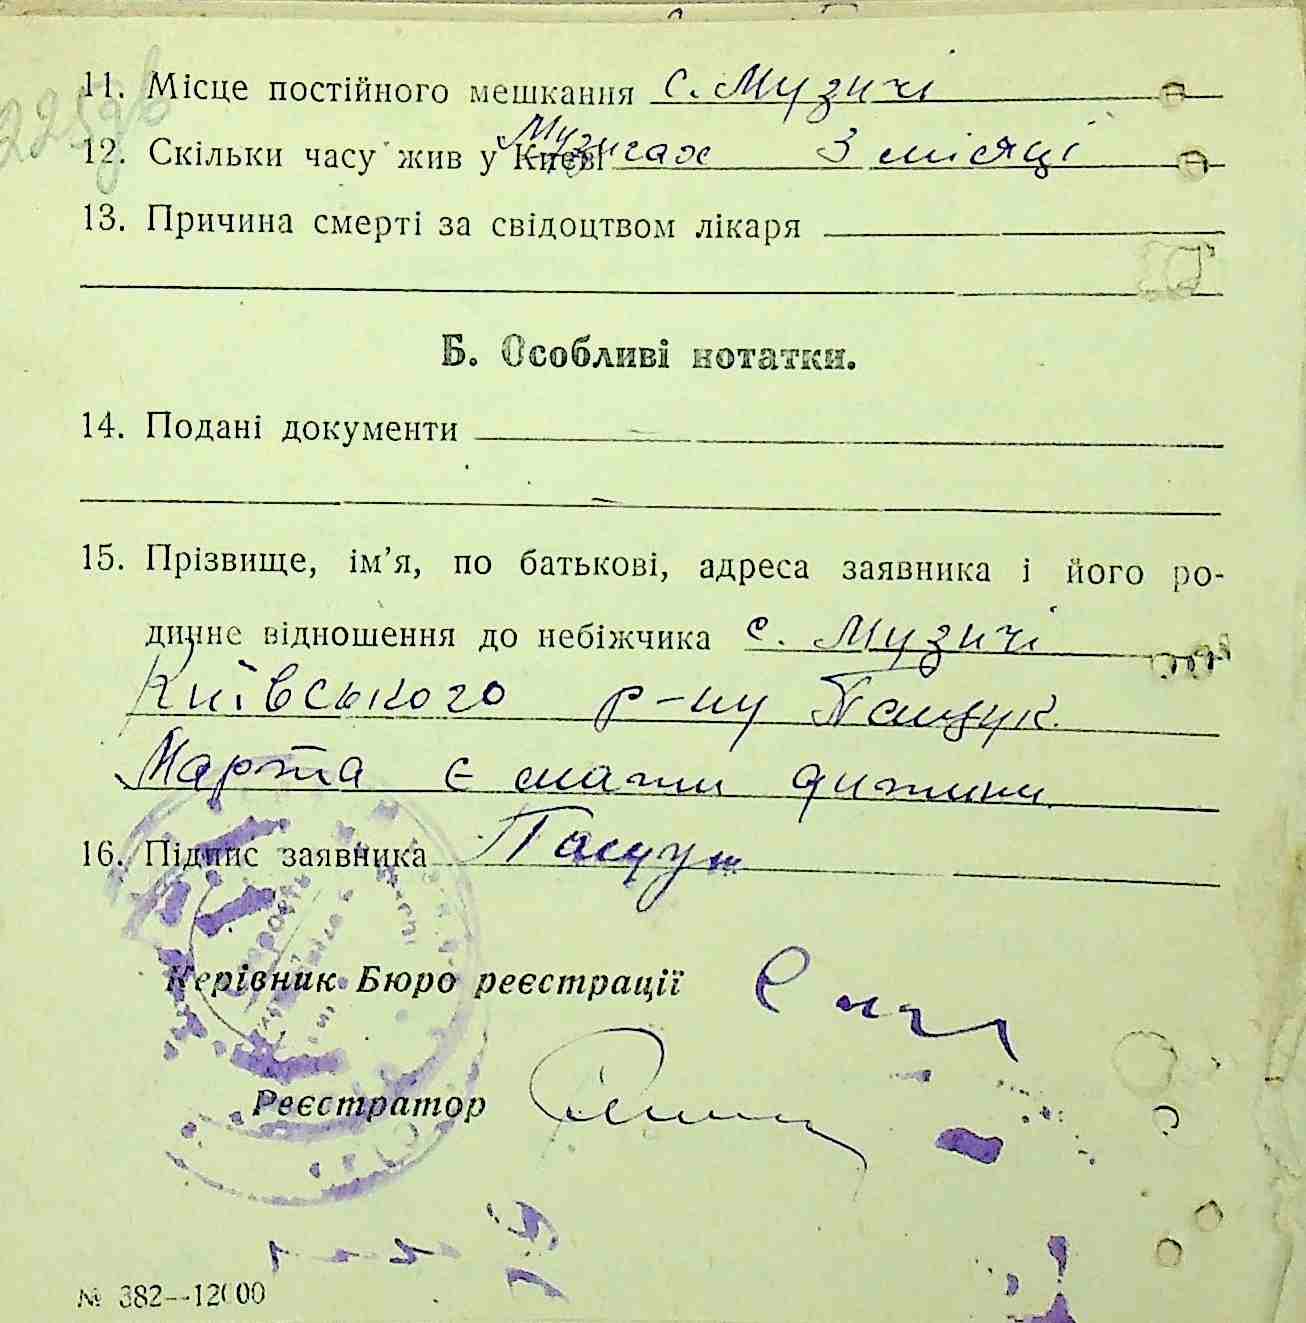 11. Місце постійного мешкання с. Музичі
12. Скільки часу жив у Києві Музичах 3 місяці
13. Причина смерті за свідоцтвом лікаря
Б. Особливі нотатки.
14. Подані документи
15. Прізвище, ім'я, по батькові, адреса заявника і його ро-
динне відношення до небіжчика с. Музичі
Київського р-ну Пащук
Марта є мати дитини
16. Підпис заявника Пащук
Керівник Бюро реєстрації
Реєстратор
№ 382—12000